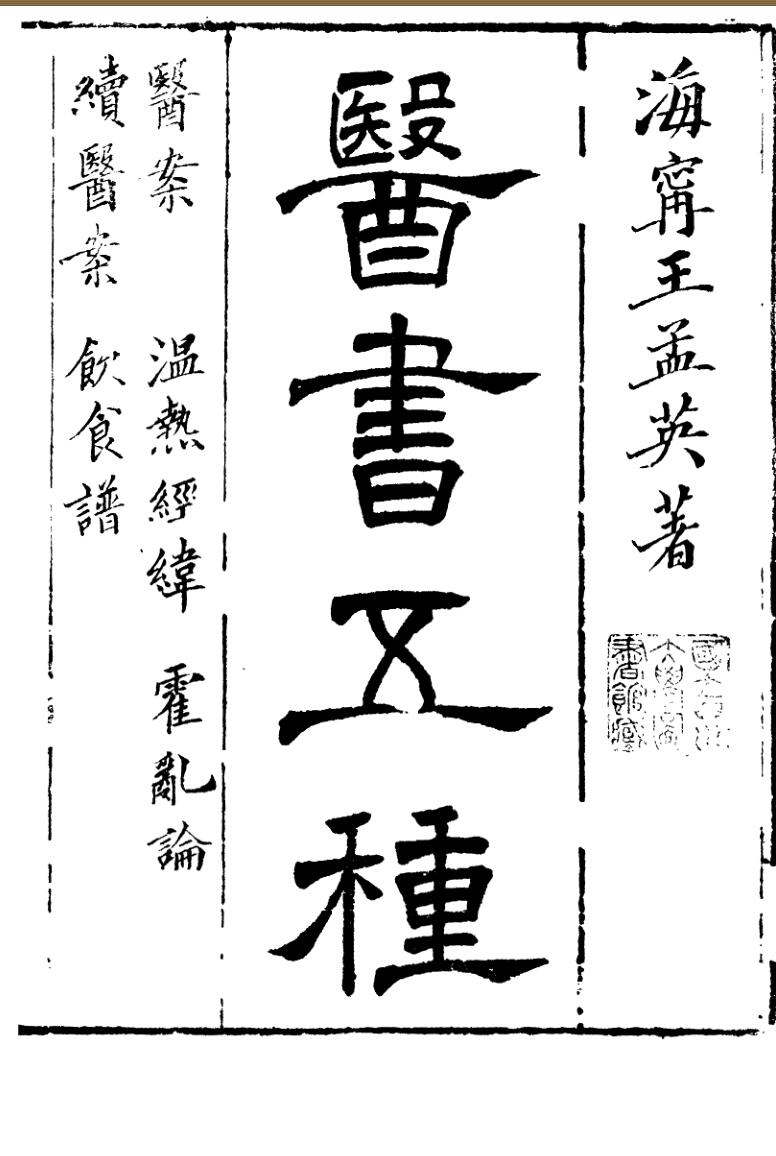 海甯王孟英著
醫書五種
醫案　溫熱經緯　霍亂論
續醫案　飲食譜